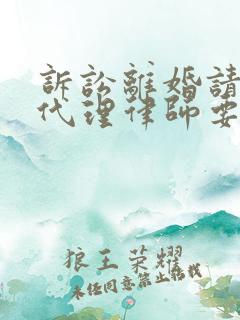 訴訟離婚請
代理律師要
狼王荣耀
未经同意禁止转载